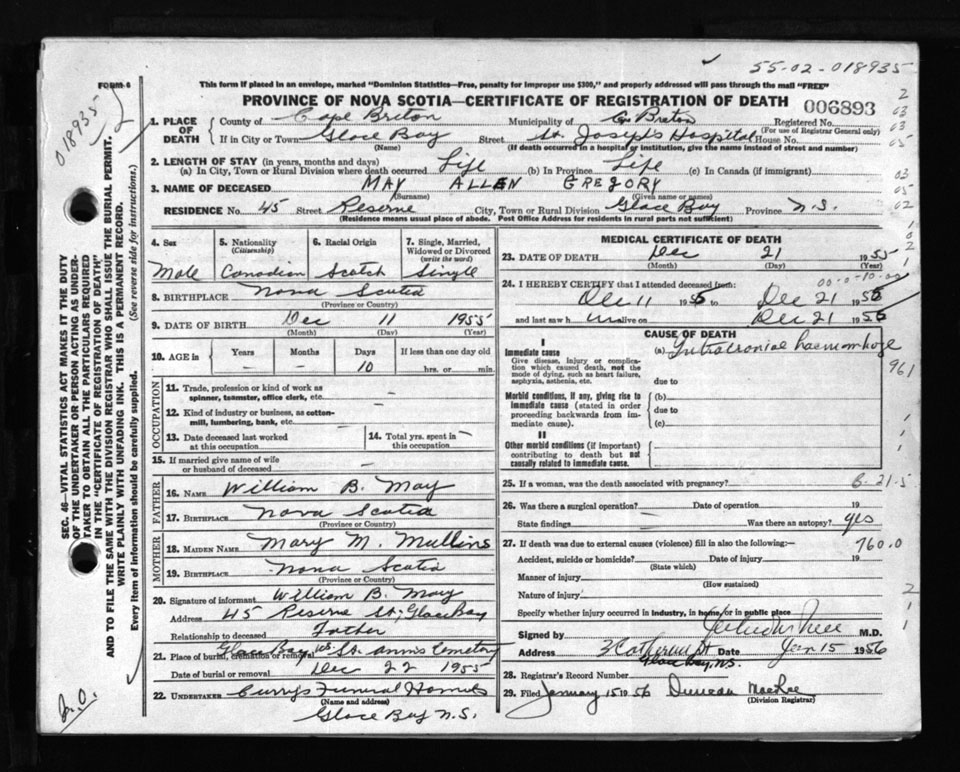 55-02-018935
FORM 6
This form if placed in an envelope, marked "Dominion Statistics—Free, penalty for improper use $300," and properly addressed will pass through the mail "FREE"
PROVINCE OF NOVA SCOTIA—CERTIFICATE OF REGISTRATION OF DEATH 006893
018935
1. PLACE OF DEATH
County of Cape Breton Municipality of C. Breton Registered No.
(For use of Registrar General only)
If in City or Town Glace Bay Street St. Joseph's Hospital House No.
(Name) (If death occurred in a hospital or institution, give the name instead of street and number)
2. LENGTH OF STAY (in years, months and days)
(a) In City, Town or Rural Division where death occurred Life (b) in Province Life (c) In Canada (if immigrant)
3. NAME OF DECEASED MAY ALLEN GREGORY
(Surname) (Given name or names)
RESIDENCE No. 45 Street Reserve City, Town or Rural Division Glace Bay Province N.S.
(Residence means usual place of abode. Post Office Address for residents in rural parts not sufficient)
4. Sex 5. Nationality (Citizenship) 6. Racial Origin 7. Single, Married, Widowed or Divorced (write the word)
Male Canadian Scotch Single
8. BIRTHPLACE Nova Scotia
(Province or Country)
9. DATE OF BIRTH Dec 11 1955
(Month) (Day) (Year)
10. AGE in Years Months Days If less than one day old
— — 10 hrs. or min.
OCCUPATION
11. Trade, profession or kind of work as spinner, teamster, office clerk, etc. —
12. Kind of industry or business, as cotton-mill, lumbering, bank, etc. —
13. Date deceased last worked at this occupation — 14. Total yrs. spent in this occupation —
15. If married give name of wife or husband of deceased —
FATHER
16. NAME William B. May
17. BIRTHPLACE Nova Scotia
(Province or Country)
MOTHER
18. MAIDEN NAME Mary M. Mullins
19. BIRTHPLACE Nova Scotia
(Province or Country)
20. Signature of informant William B. May
Address 45 Reserve St; Glace Bay
Relationship to deceased Father
21. Place of burial, cremation or removal Glace Bay N.S. St. Ann's Cemetery
Date of burial or removal Dec 22 1955
22. UNDERTAKER Curry's Funeral Homes
(Name and address)
Glace Bay N.S.
MEDICAL CERTIFICATE OF DEATH
23. DATE OF DEATH Dec 21 1955
(Month) (Day) (Year)
24. I HEREBY CERTIFY that I attended deceased from:
Dec 11 1955 to Dec 21 1955
and last saw h im alive on Dec 21 1955
CAUSE OF DEATH
I
Immediate cause
Give disease, injury or complication which caused death, not the mode of dying, such as heart failure, asphyxia, asthenia, etc.
(a) Intracranial haemorrhage
961
due to
Morbid conditions, if any, giving rise to immediate cause (stated in order proceeding backwards from immediate cause).
(b)
due to
(c)
II
Other morbid conditions (if important) contributing to death but not causally related to immediate cause.
25. If a woman, was the death associated with pregnancy?
6-21-5
26. Was there a surgical operation? — Date of operation 19
State findings Was there an autopsy? yes
27. If death was due to external causes (violence) fill in also the following:—
760.0
Accident, suicide or homicide? Date of injury 19
(State which)
Manner of injury
(How sustained)
Nature of injury
Specify whether injury occurred in industry, in home, or in public place
Signed by M.D.
Address 3 Catherine St Jan 15 1956
Glace Bay, N.S.
28. Registrar's Record Number
29. Filed January 15 1956 Duncan MacRae
(Division Registrar)
SEC. 46—VITAL STATISTICS ACT MAKES IT THE DUTY
OF THE UNDERTAKER OR PERSON ACTING AS UNDER-
TAKER TO OBTAIN ALL THE PARTICULARS REQUIRED
IN THE "CERTIFICATE OF REGISTRATION OF DEATH"
AND TO FILE THE SAME WITH THE DIVISION REGISTRAR WHO SHALL ISSUE THE BURIAL PERMIT.
WRITE PLAINLY WITH UNFADING INK. THIS IS A PERMANENT RECORD.
Every item of information should be carefully supplied. (See reverse side for instructions.)